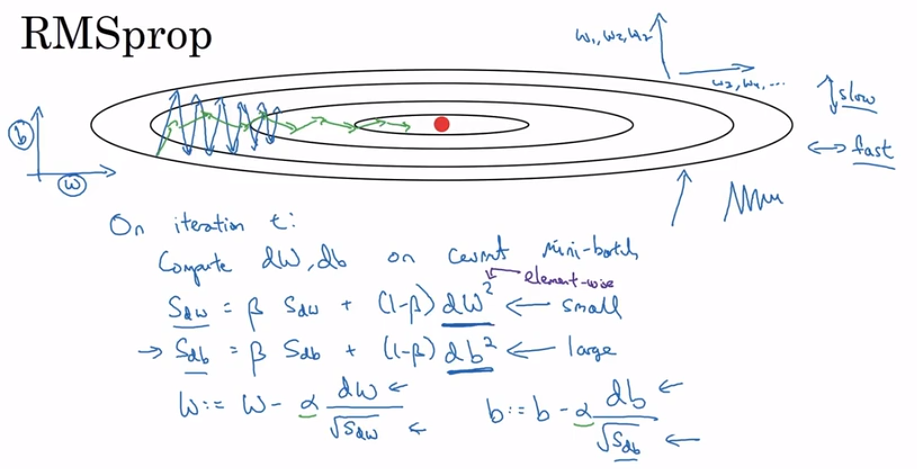 RMSprop
w₁, w₂, w₇
w₃, w₄, ...
↕ slow
↔ fast
b
w
On iteration t:
Compute dW, db on current mini-batch
element-wise
S_dw = β S_dw + (1-β) dW² ← small
→ S_db = β S_db + (1-β) db² ← large
W := W - α dW/√S_dw ← b := b - α db/√S_db ←